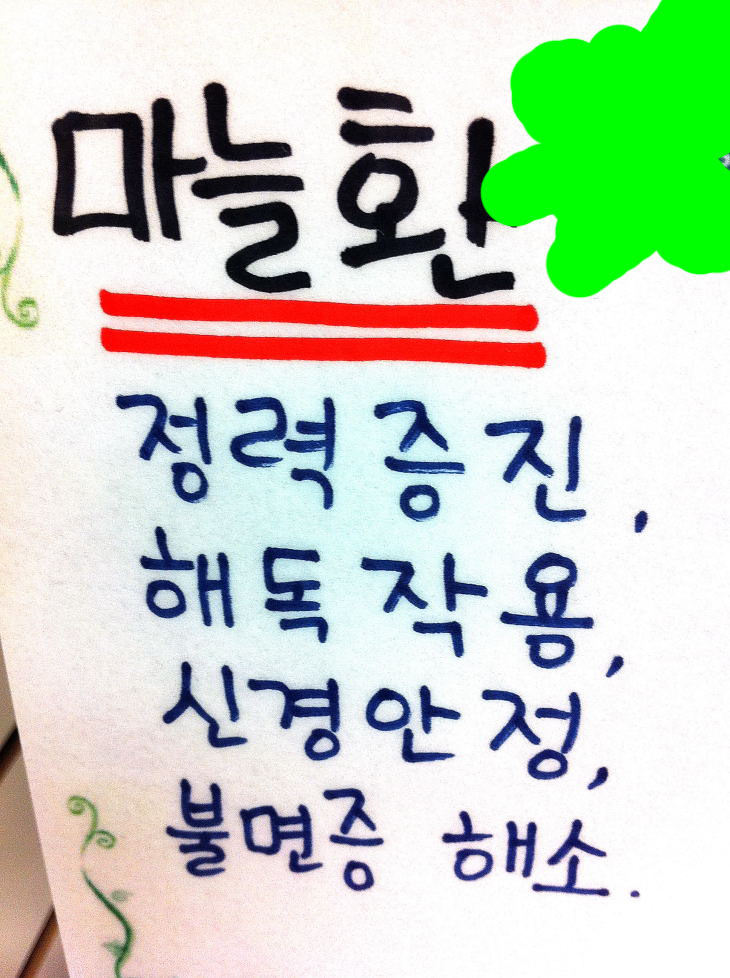 마늘환
정력증진,
해독작용,
신경안정,
불면증 해소.